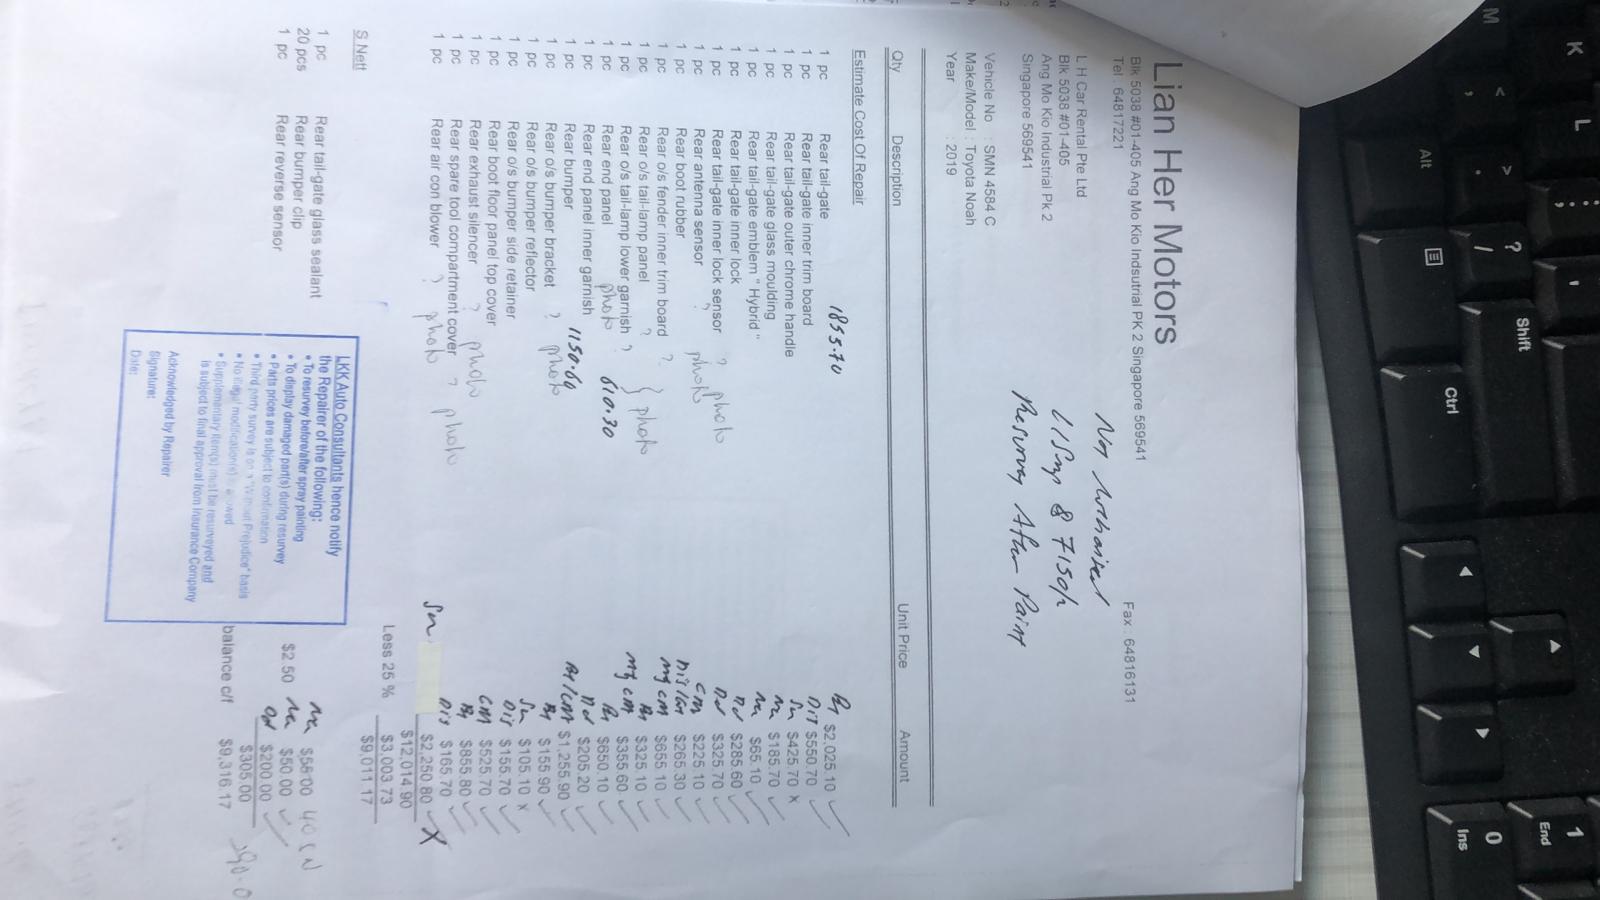 Lian Her Motors
Blk 5038 #01-405 Ang Mo Kio Indsutrial PK 2 Singapore 569541
Tel : 64817221 Fax : 64816131
L H Car Rental Pte Ltd
Blk 5038 #01-405
Ang Mo Kio Industrial Pk 2
Singapore 569541
Not Authorised
L1Sny & 7150p
Resurvey After Paint
Vehicle No : SMN 4584 C
Make/Model : Toyota Noah
Year : 2019
Qty Description Unit Price Amount
Estimate Cost Of Repair
1855.70
1 pc Rear tail-gate $2,025.10
1 pc Rear tail-gate inner trim board Dis $550.70
1 pc Rear tail-gate outer chrome handle Sn $425.70 x
1 pc Rear tail-gate glass moulding na $185.70
1 pc Rear tail-gate emblem " Hybrid " na $65.10
1 pc Rear tail-gate inner lock Dd $285.60
1 pc Rear tail-gate inner lock sensor ? photo Dd $325.70
1 pc Rear antenna sensor ? photo cm $225.10
1 pc Rear boot rubber $265.30
1 pc Rear o/s fender inner trim board ? cm $655.10
1 pc Rear o/s tail-lamp panel ? photo $325.10
1 pc Rear o/s tail-lamp lower garnish ? cm $355.60
1 pc Rear end panel photo 610.30 $650.10
1 pc Rear end panel inner garnish Dd $205.20
1 pc Rear bumper 1150.60 $1,255.90
1 pc Rear o/s bumper bracket ? photo $155.90
1 pc Rear o/s bumper reflector Sn $105.10 x
1 pc Rear o/s bumper side retainer Dis $155.70
1 pc Rear boot floor panel top cover cm $525.70
1 pc Rear exhaust silencer ? photo $855.80
1 pc Rear spare tool compartment cover ? photo Dis $165.70
1 pc Rear air con blower ? photo Sn $2,250.80 X
$12,014.90
Less 25 % $3,003.73
$9,011.17
S Nett
1 pc Rear tail-gate glass sealant na $55.00 40 SN
20 pcs Rear bumper clip $2.50 na $50.00
1 pc Rear reverse sensor $200.00
$305.00
balance c/f $9,316.17
LKK Auto Consultants hence notify
the Repairer of the following:
• To resurvey before/after spray painting
• To display damaged part(s) during resurvey
• Parts prices are subject to confirmation
• Third party survey is on a "Without Prejudice" basis
• No illegal modification(s) is allowed
• Supplementary item(s) must be resurveyed and
is subject to final approval from Insurance Company
Acknowledged by Repairer
Signature:
Date:
M
K
L
<
,
>
.
?
/
:
;
Alt
Ctrl
Shift
0
Ins
1
End